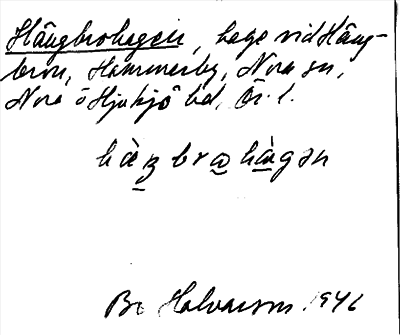 Hängbrohagen, hage vid Häng-
bron, Hammarby, Nora sn,
Nora o Hjulsjö bd, Ör. l.
hàŋbrωhàgən
Bo Halvarson 1946